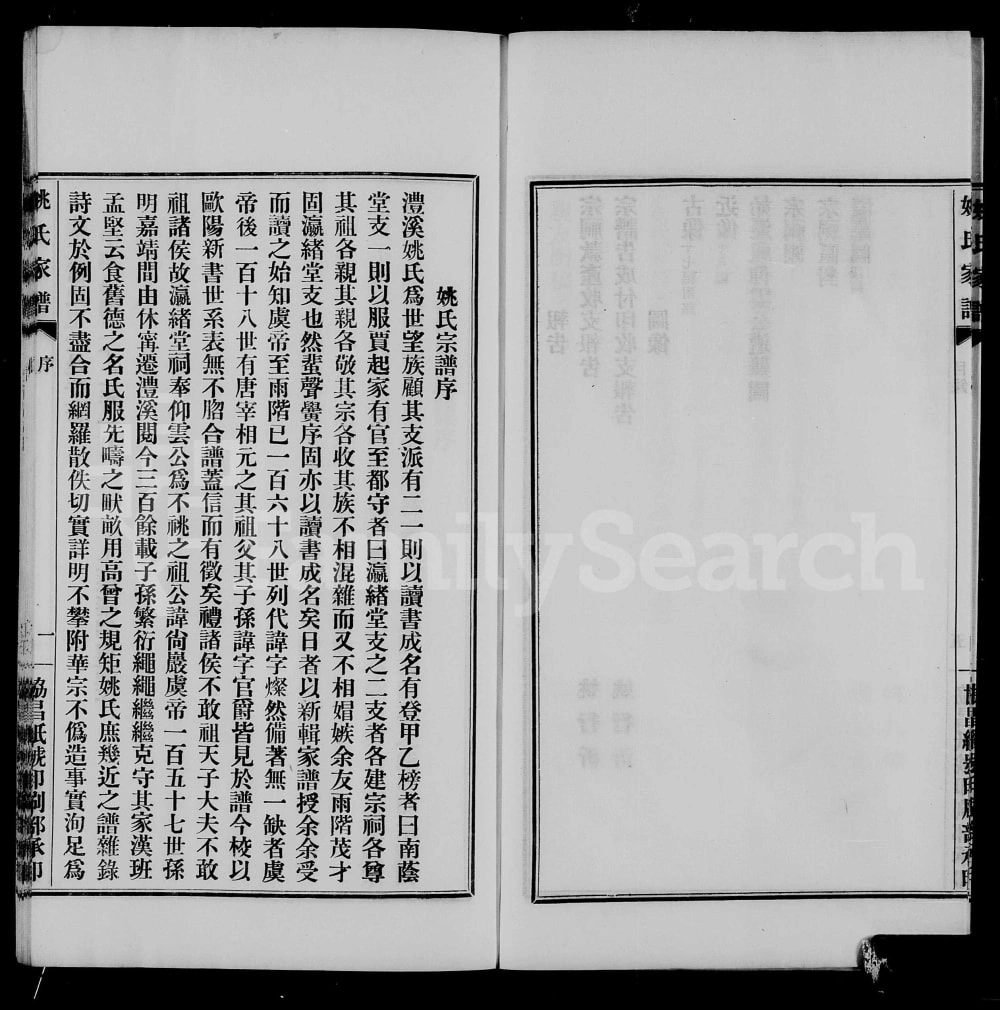 姚氏家譜
協昌紙號印刷部承印
姚氏宗譜序
澧溪姚氏爲世望族顧其支派有二一則以讀書成名有登甲乙榜者曰南蔭
堂支一則以服賈起家有官至都守者曰瀛緒堂支之二支者各建宗祠各尊
其祖各親其親各敬其宗各收其族不相混雜而又不相媢嫉余友雨階茂才
固瀛緒堂支也然蜚聲黌序固亦以讀書成名矣日者以新輯家譜授余余受
而讀之始知虞帝至雨階已一百六十八世列代諱字燦然備著無一缺者虞
帝後一百十八世有唐宰相元之其祖父其子孫諱字官爵皆見於譜今校以
歐陽新書世系表無不脗合譜蓋信而有徵矣禮諸侯不敢祖天子大夫不敢
祖諸侯故瀛緒堂祠奉仰雲公爲不祧之祖公諱尙嚴虞帝一百五十七世孫
明嘉靖間由休甯遷澧溪閱今三百餘載子孫繁衍繩繩繼繼克守其家漢班
孟堅云食舊德之名氏服先疇之畎畝用高曾之規矩姚氏庶幾近之譜雜錄
詩文於例固不盡合而網羅散佚切實詳明不攀附華宗不僞造事實洵足爲
姚氏家譜
序
一
協昌紙號印刷部承印
FamilySearch